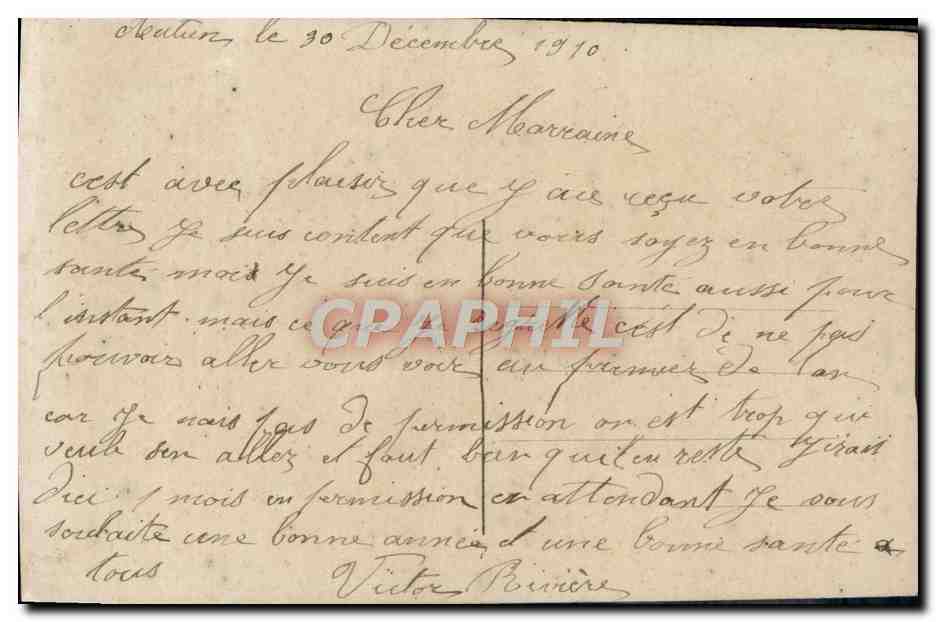 Autun le 30 Décembre 1910
Cher Marraine
cest avec plaisir que J ai reçu votre
lettre Je suis content que vous soyez en bonne
sante mais Je suis en bonne santé aussi pour
l'instant mais ce que je c'est de ne pas
pouvoir aller vous voir au premier de lan
car Je nais pas de permission on est trop qui
veule sen allez et faut bien quil en reste Jirais
dici 1 mois en permission en attendant Je vous
souhaite une bonne année d une bonne santé a
tous Victor Rivière
CPAPHIL